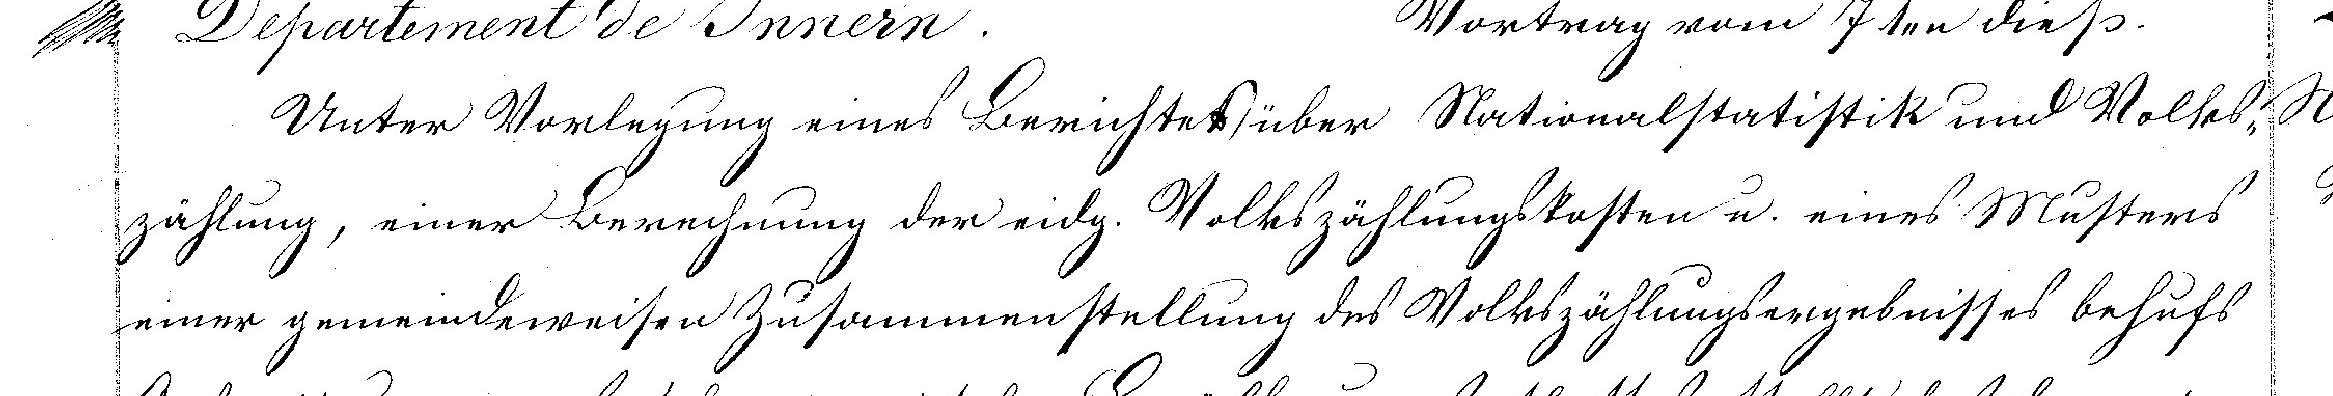 Departement de Innern. Vortrag vom 7ten dieß.
Unter Vorlegung eines Berichtes über Nationalstatistik und Volks-
zählung, einer Berechnung der eidg. Volkszählungskosten u. eines Musters
einer gemeindeweisen Zusammenstellung des Volkszählungsergebnisses behufs